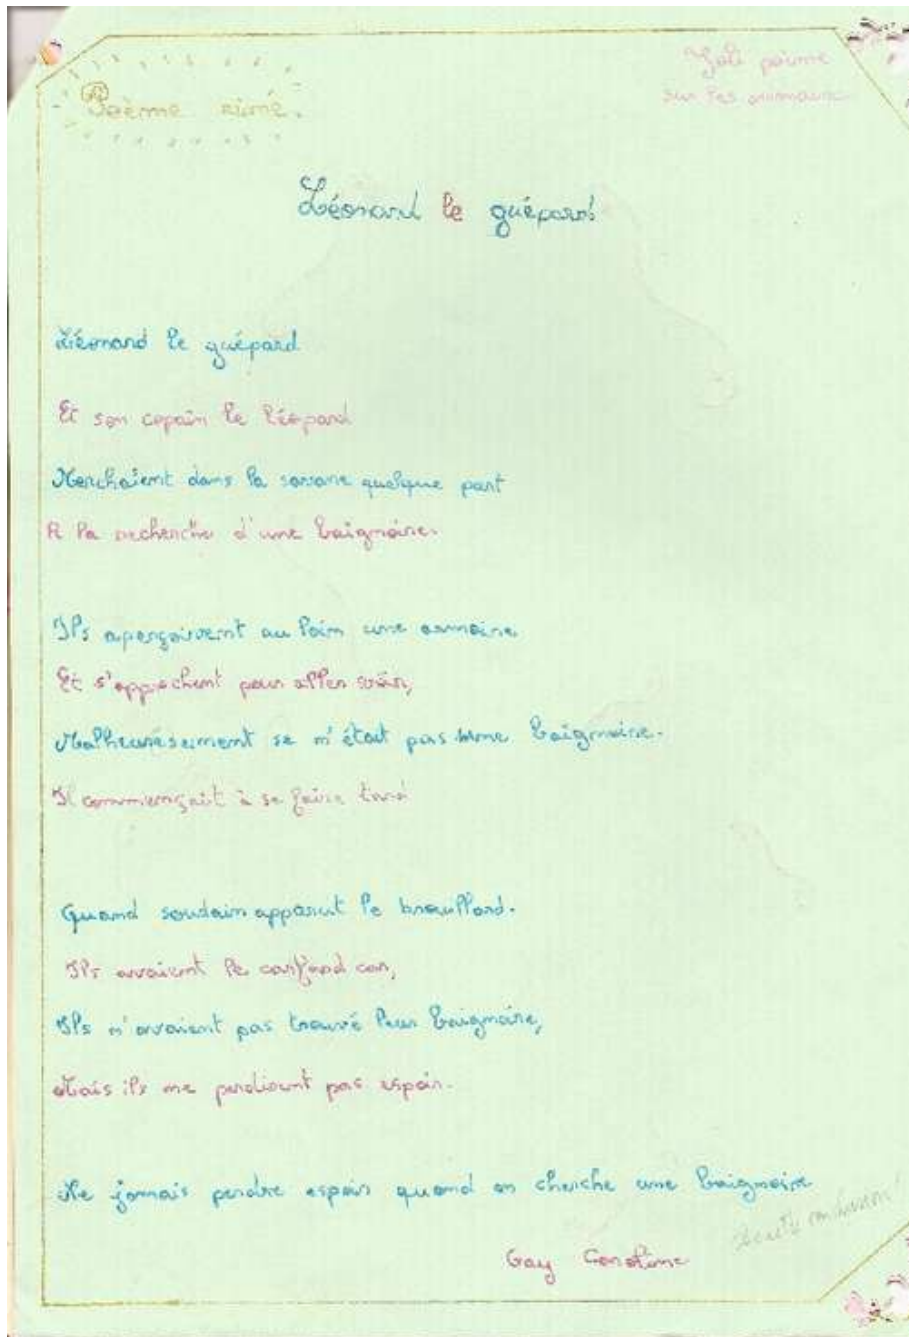 Poème rimé.
Joli poème
sur les animaux
Léonard le guépard
Léonard le guépard
Et son copain le léopard
Marchaient dans la savane quelque part
A la recherche d'une baignoire.
Ils aperçoivent au loin une armoire
Et s'approchent pour aller voir,
Malheuresement se n'était pas une baignoire.
Il commençait à se faire tard
Quand soudain apparut le brouillard.
Ils avaient le cafard car,
Ils n'avaient pas trouvé leur baignoire,
Mais ils ne perdirent pas espoir.
Ne jamais perdre espoir quand on cherche une baignoire
Gay Caroline